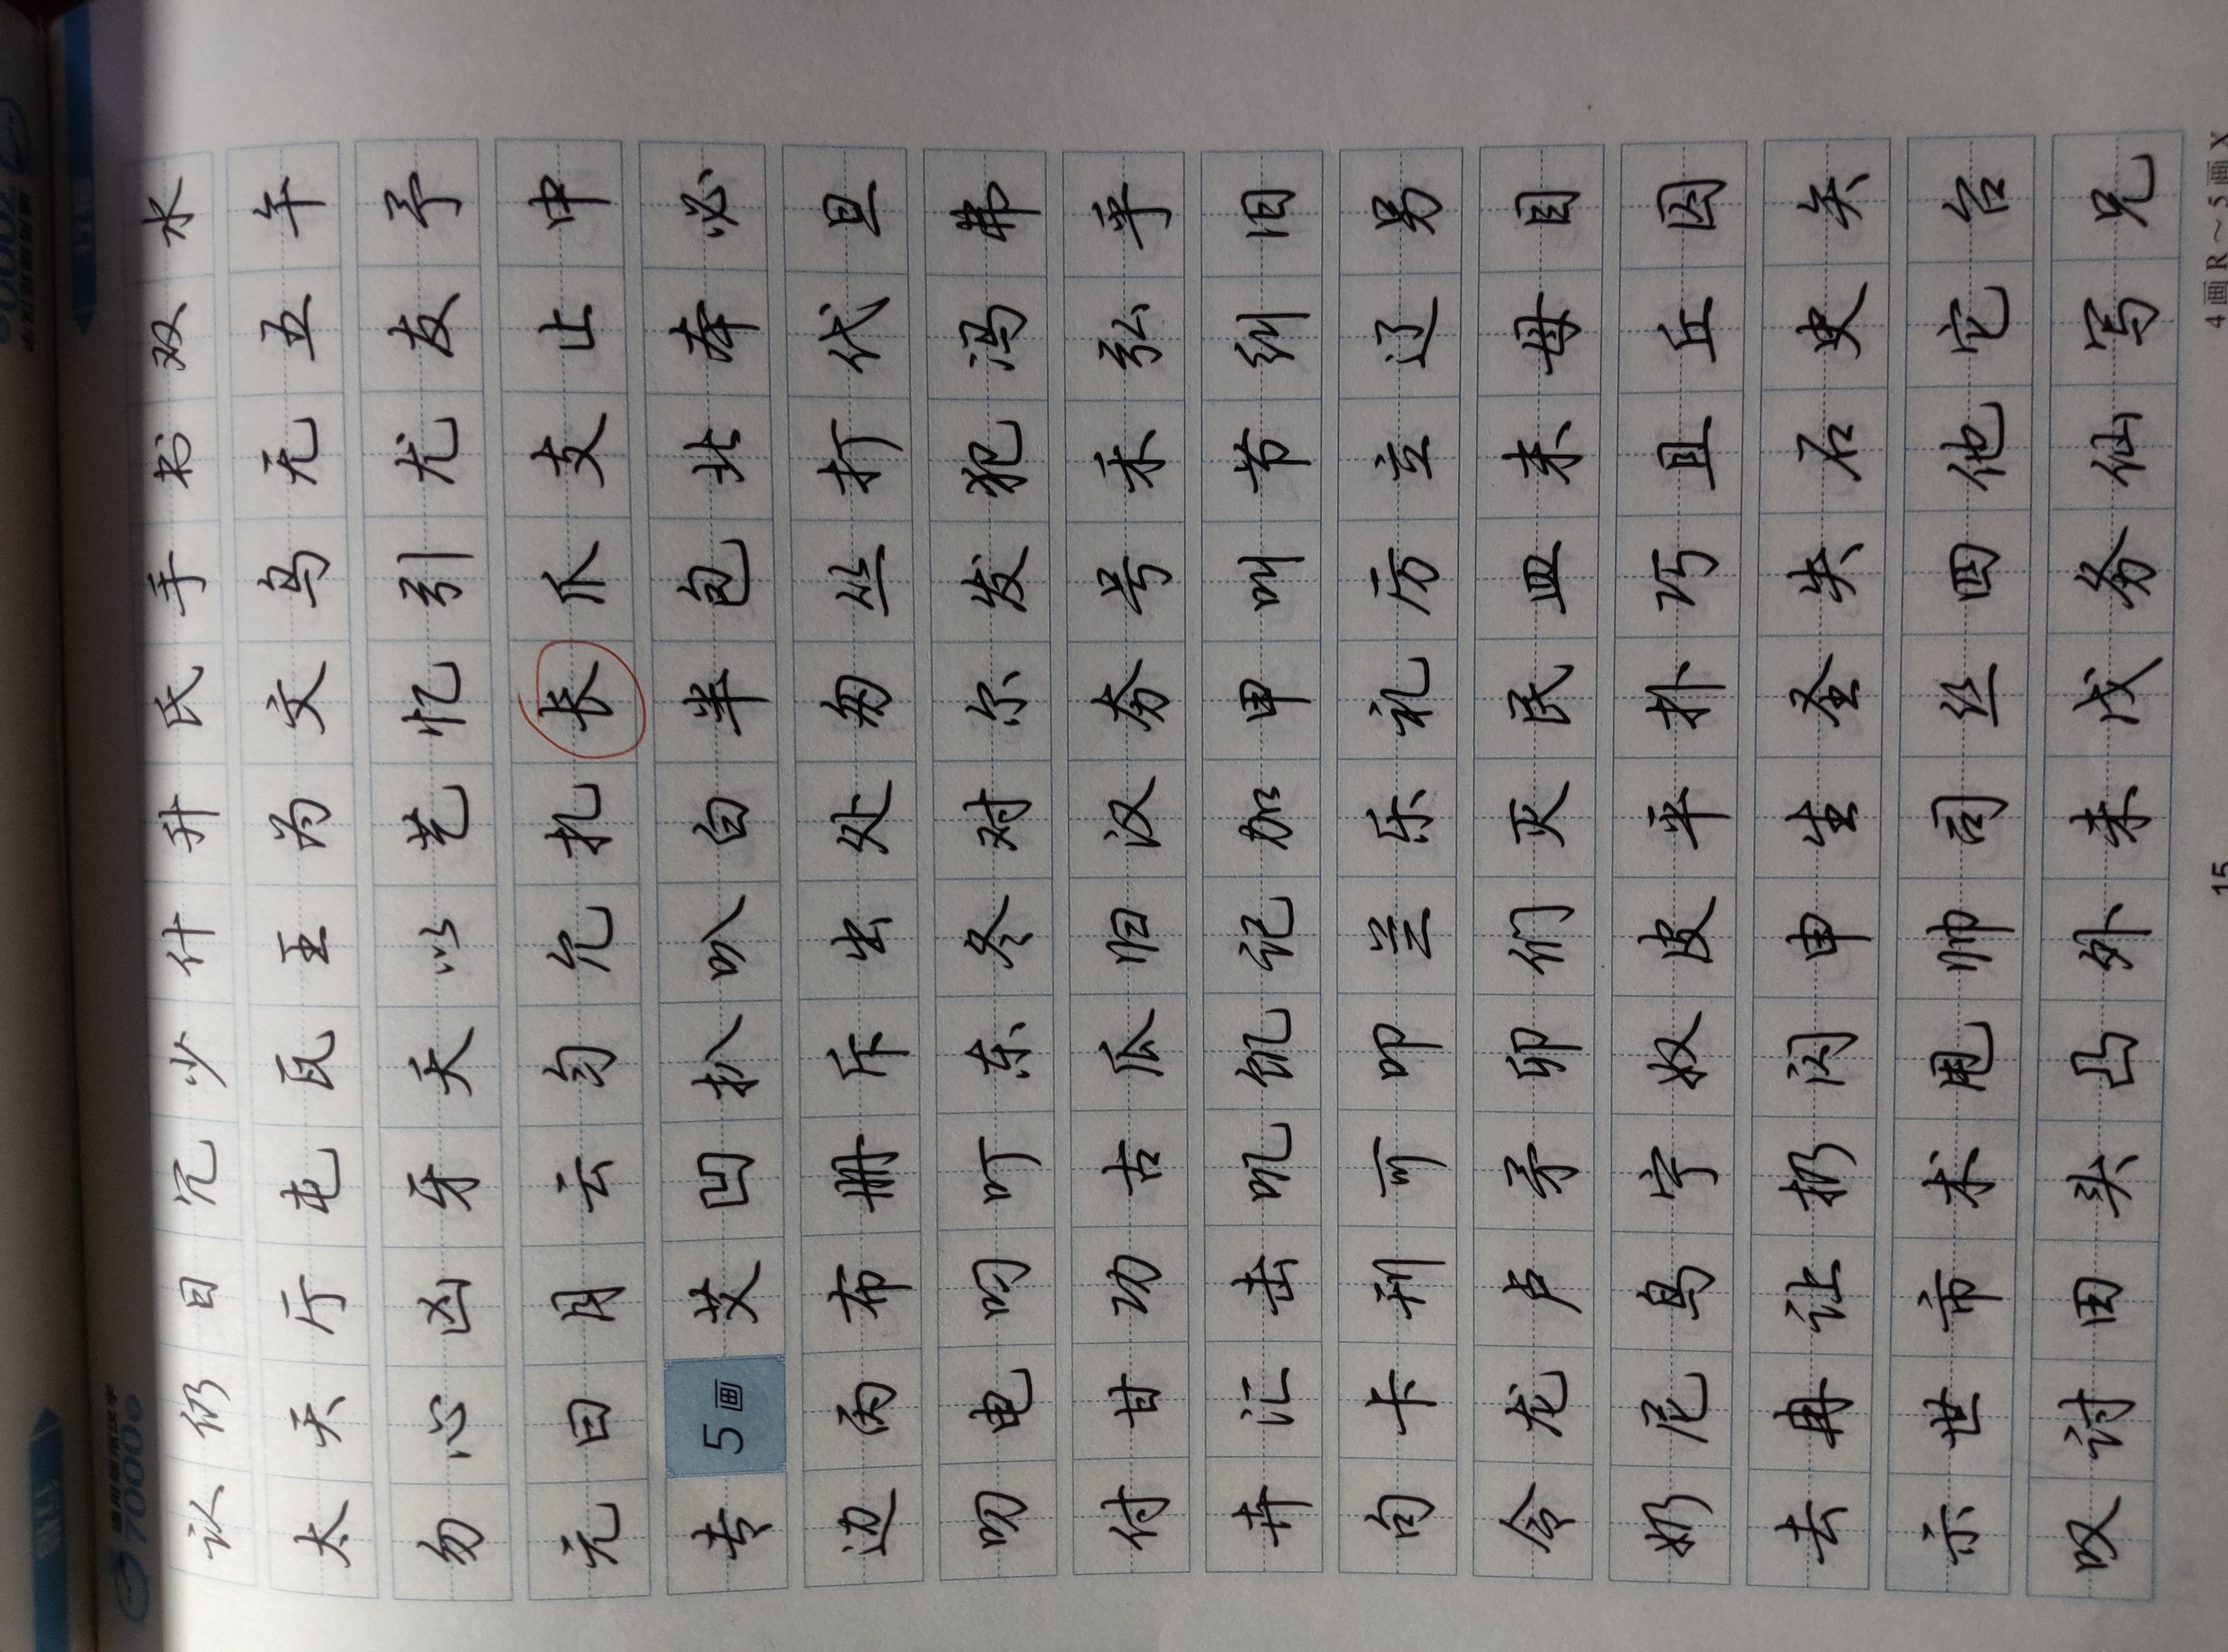 行楷
7000
通用规范汉字
7000字
行楷
认仍日冗少什升氏手书双水
太天厅屯瓦王为文乌无五午
勿心凶牙夭以艺忆引尤友予
元曰月云匀允扎长爪支止中
专 5画 艾凹扒叭白半包北本必
边丙布册斥出处匆丛打代旦
叨电叼叮东冬对尔发犯冯弗
付甘功古瓜归汉夯号禾弘乎
卉汇击叽饥记加甲叫节纠旧
句卡刊可叩兰乐礼厉立辽另
令龙卢矛卯们灭民皿末母目
奶尼鸟宁奴皮平扑巧且丘囚
去冉让扔闪申生圣失石史矢
示世市术甩帅司丝四他它台
叹讨田头凸外未戊务仙写兄
15
4画R～5画X